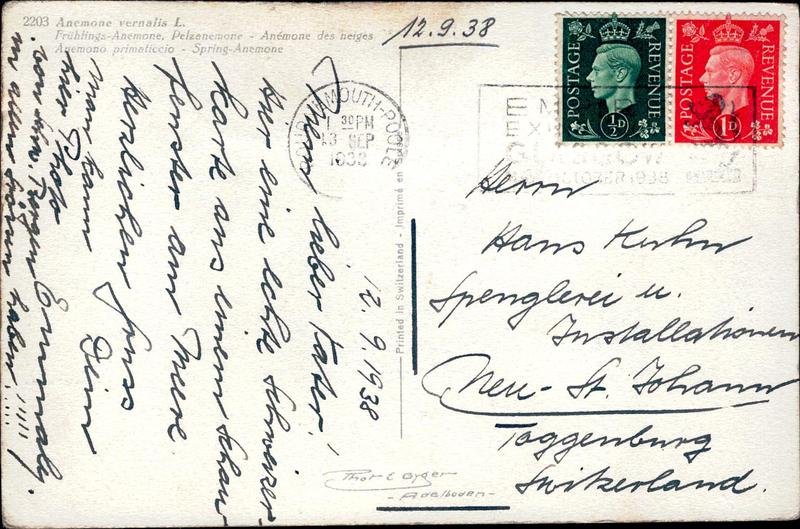 2203 Anemone vernalis L.
Frühlings-Anemone, Pelzanemone - Anémone des neiges
Anemono primaticcio - Spring-Anemone
12.9.38
POSTAGE REVENUE
½D
POSTAGE REVENUE
1D
BOURNEMOUTH-POOLE
1 30 PM
13 SEP
1938
12.9.1938
Mein lieber Vater!
Hier eine echte Schweizer-
karte aus einem Schau-
fenster am Meere
Herzlichen Gruss
Dein
man kann
hier Photo
von den Bergen
in allen haben!!!!!
Printed in Switzerland - Imprimé en Suisse
Herrn
Hans Kuhn
Spenglerei u.
Installationen
Neu-St. Johann
Toggenburg
Switzerland.
Thor E Gyger
- Adelboden -